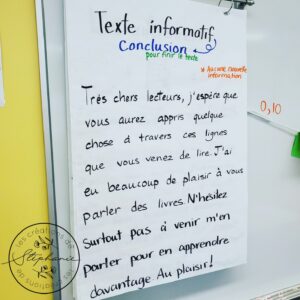 Texte informatif
Conclusion
pour finir le texte
* Aucune nouvelle
information
Très chers lecteurs, j'espère que
vous aurez appris quelque
chose à travers ces lignes
que vous venez de lire. J'ai
eu beaucoup de plaisir à vous
parler des livres. N'hésitez
surtout pas à venir m'en
parler pour en apprendre
davantage. Au plaisir!
0,10
les créations de
Stéphanie